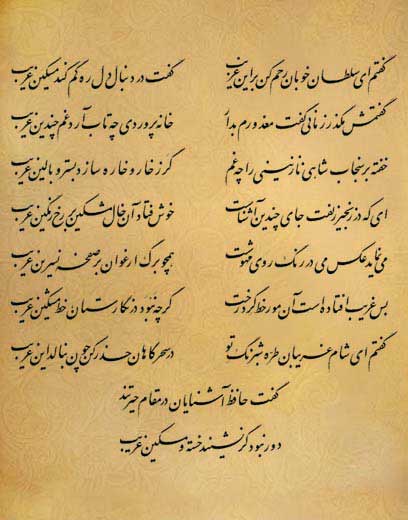 گفتم ای سلطان خوبان رحم کن بر این غریب گفت در دنبال دل ره گم کند مسکین غریب
گفتمش مگذر زمانی گفت معذورم بدار خانه پروردی چه تاب آرد غم چندین غریب
خفته بر سنجاب شاهی نازنینی را چه غم گر ز خار و خاره سازد بستر و بالین غریب
ای که در زنجیر زلفت جای چندین آشناست خوش فتاد آن خال مشکین بر رخ رنگین غریب
می نماید عکس می در رنگ روی مهوشت همچو برگ ارغوان بر صفحه نسرین غریب
بس غریب افتاده است آن مور خط گرد رخت گرچه نبود در نگارستان خط مشکین غریب
گفتم ای شام غریبان طره شبرنگ تو در سحرگاهان حذر کن چون بنالد این غریب
گفت حافظ آشنایان در مقام حیرتند
دور نبود گر نشیند خسته و مسکین غریب